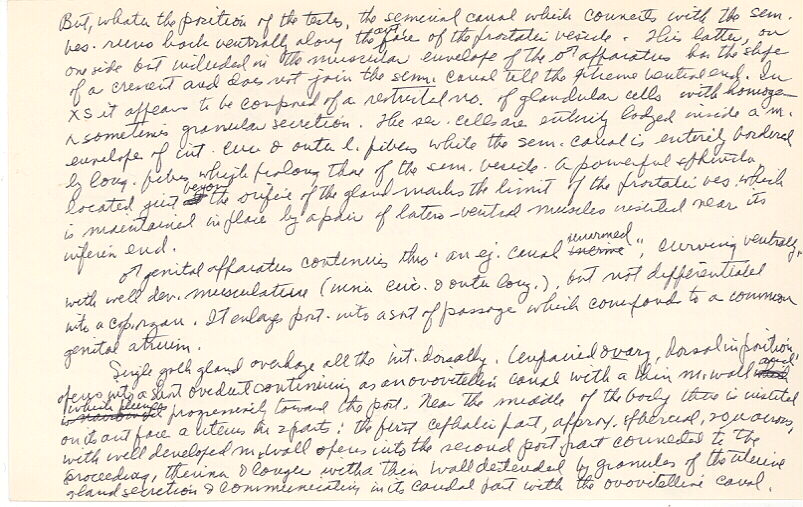 But, whatever the position of the testes, the seminal canal which connects with the sem.
ves. runs back ventrally along the ant face of the prostatic vesicle. This latter, on
one side but included in the muscular envelope of the ♂ apparatus has the shape
of a crescent and does not join the sem. canal till the extreme ventral end. In
XS it appears to be composed of a restricted no. of glandular cells with homogen-
& sometimes granular secretion. The sec. cells are entirely lodged inside a m.
envelope of int. circ & outer l. fibers while the sem. canal is entirely bordered
by long. fibers which prolong those of the sem. vesicle. A powerful sphincter
located just beyond the orifice of the gland marks the limit of the prostatic ves. which
is maintained in place by a pair of latero-ventral muscles inserted near its
inferior end.
♂ genital apparatus continues thru' an ej. canal unarmed, curving ventrally,
with well dev. musculature (inner circ. & outer long.), but not differentiated
into a cop. organ. It enlarges post. into a sort of passage which correspond to a common
genital atrium.
Single yolk gland overhangs all the int. dorsally. Unpaired ovary, dorsal in position
opens into a short oviduct continuing as an ovovitellin canal with a thin m. wall
which plunges progressively toward the post. Near the middle of the body there is inserted
on its ant face a uterus in 2 parts: the first cephalic part, approx. spherical, 20 u across,
with well developed m. wall opens into the second post part connected to the
preceeding, thinner & longer with a thin wall distended by granules of the uterine
gland secretion & communicating in its caudal part with the ovovitelline canal.